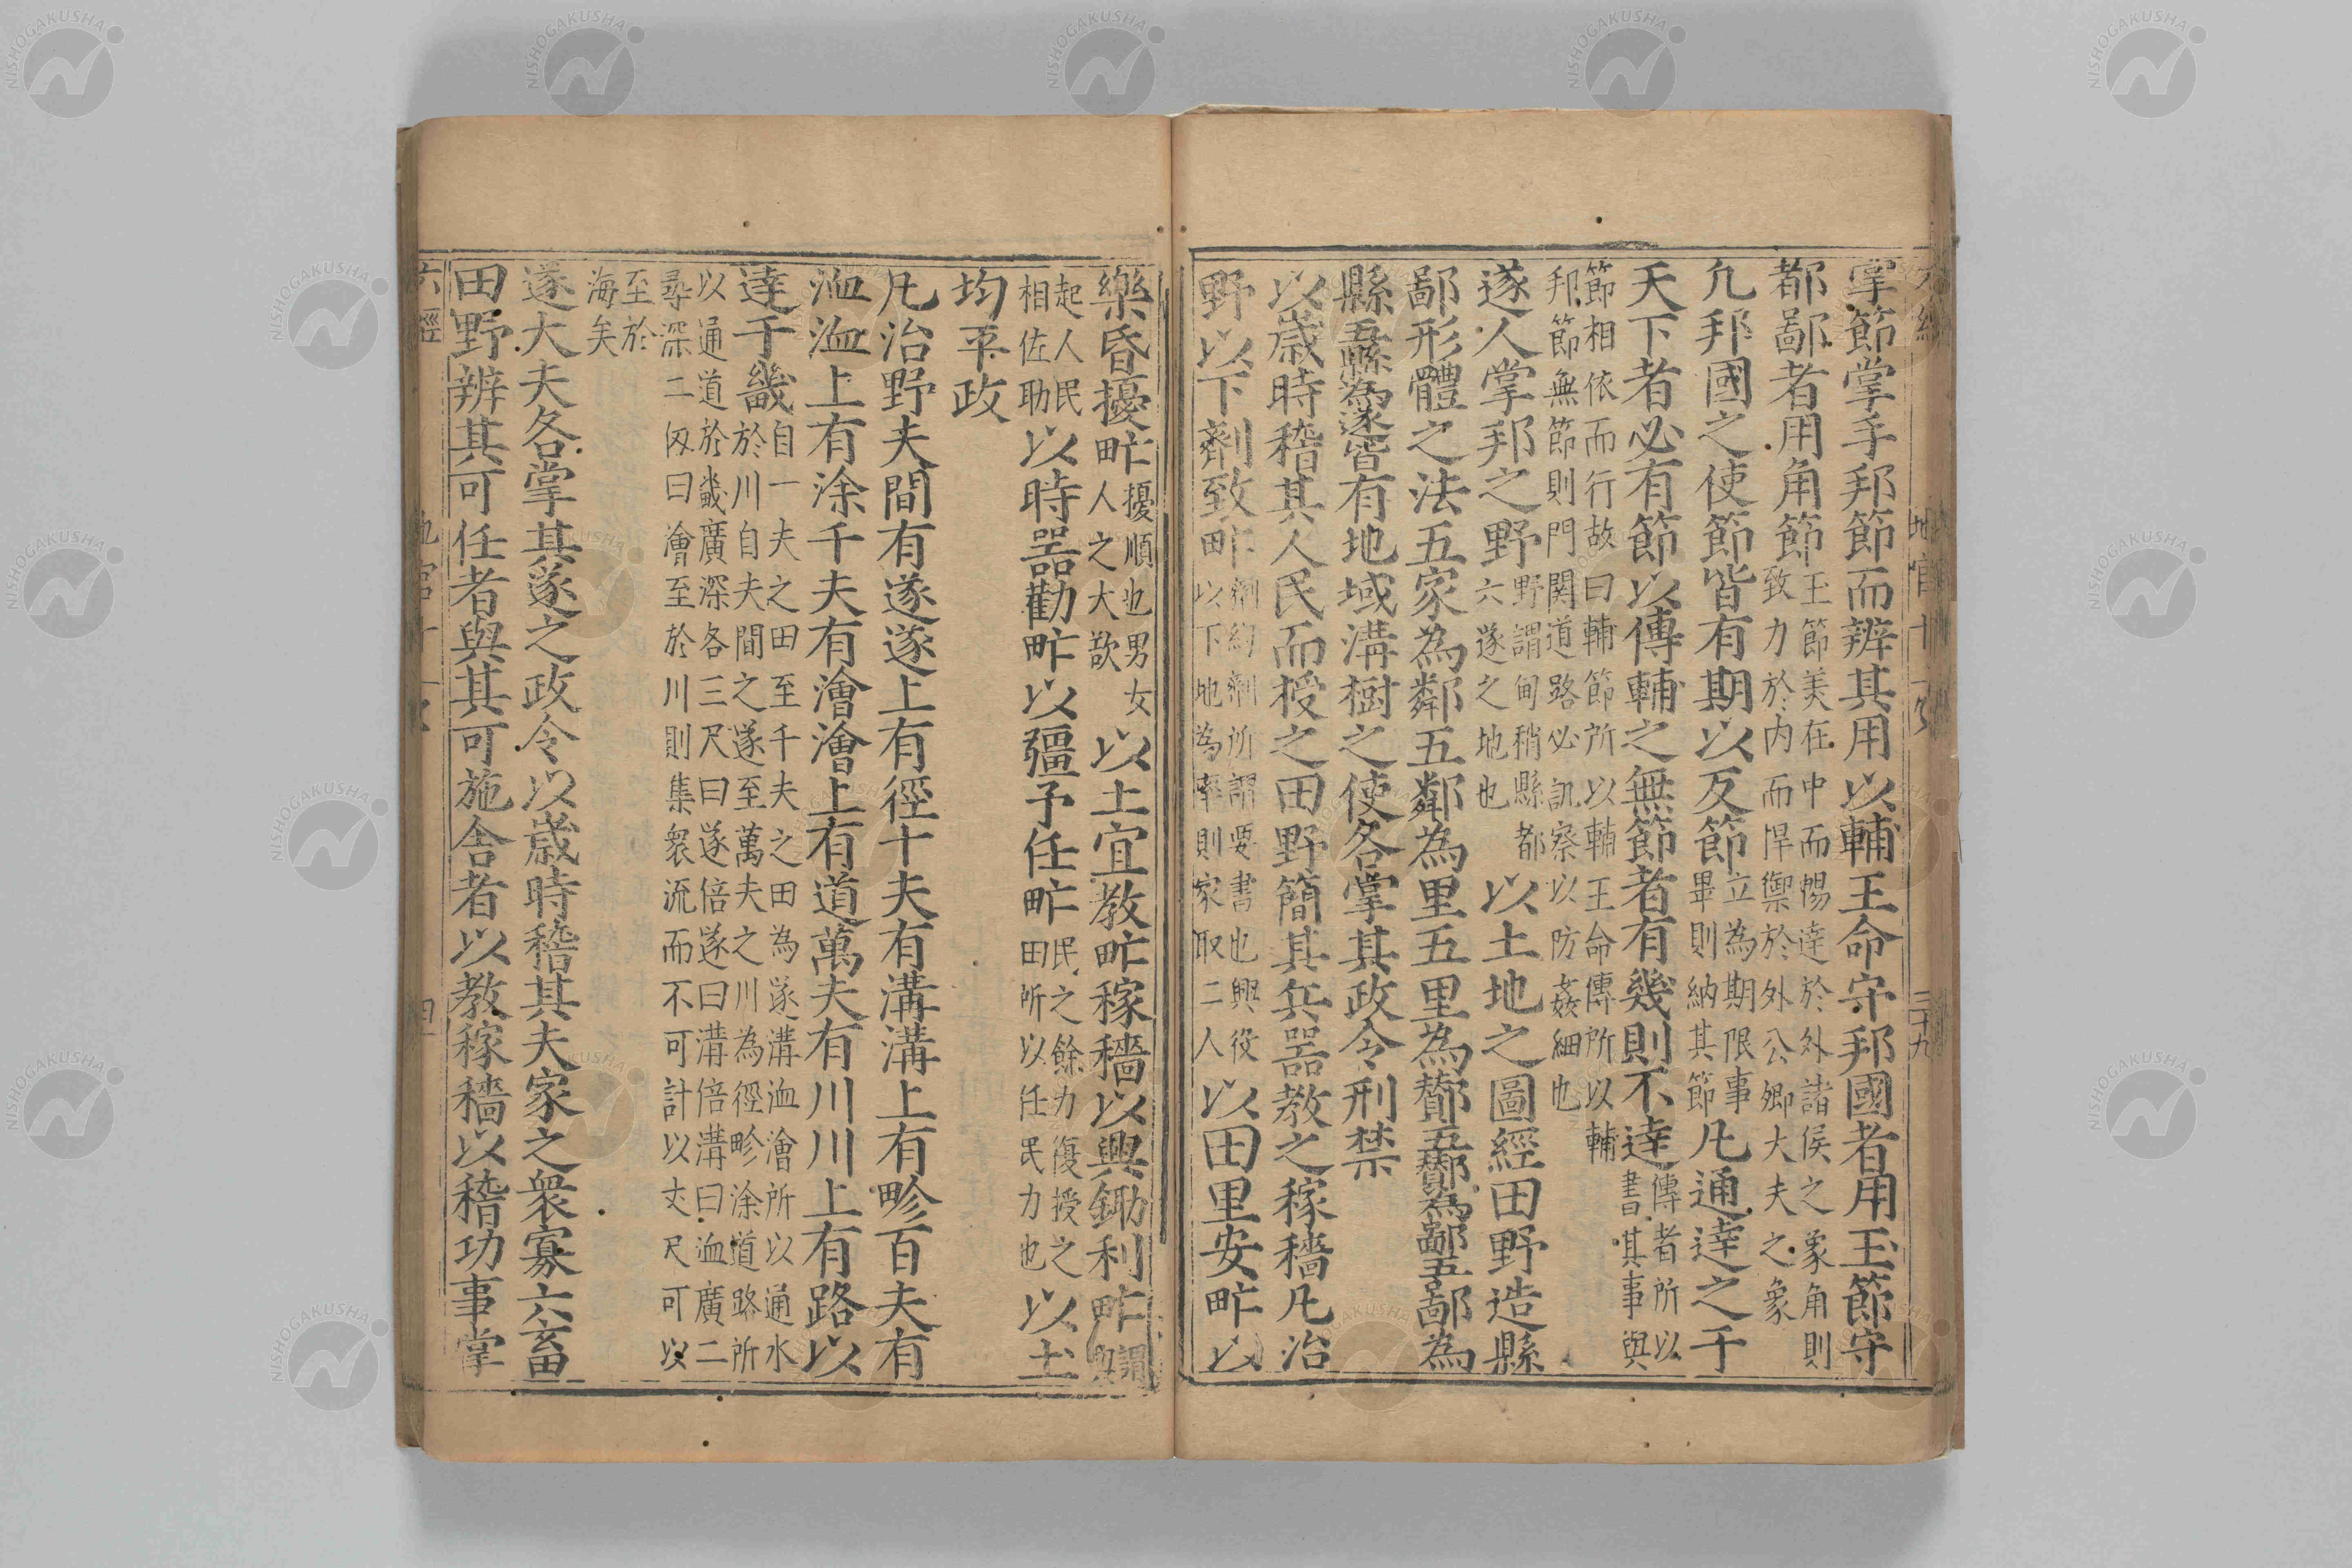 掌節掌手邦節而辨其用以輔王命守邦國者用玉節守
都鄙者用角節王節美在中而暢達於外諸侯之象角則致力於内而悍禦於外公卿大夫之象
凡邦國之使節皆有期以反節立為期限事畢則納其節凡通達之于
天下者必有節以傳輔之無節者有幾則不達傳者所以書其事與
節相依而行故曰輔節所以輔王命傳所以輔邦節無節則門関道路必訊察以防姦細也
遂人掌邦之野野謂甸稍縣都六遂之地也以土地之圖經田野造縣
鄙形體之法五家為鄰五鄰為里五里為酇五酇為鄙五鄙為
縣五縣為遂皆有地域溝樹之使各掌其政令刑禁
以歲時稽其人民而授之田野簡其兵器教之稼穡凡治
野以下劑致甿劑約劑所謂要書也興役以下地為率則家取二人以田里安甿以
樂昏擾甿擾順也男女人之大欲以土宜教甿稼穡以興鋤利甿謂
起人民相佐助以時器勸甿以疆予任甿民之餘力復授之田所以任民力也以土
均平政
凡治野夫間有遂遂上有徑十夫有溝溝上有畛百夫有
洫洫上有涂千夫有澮澮上有道萬夫有川川上有路以
達于畿自一夫之田至千夫之田為遂溝洫澮所以通水於川自夫間之遂至萬夫之川為徑畛涂道路所
以通道於畿廣深各三尺曰遂倍遂曰溝倍溝曰洫廣二尋深二仭曰澮至於川則集衆流而不可計以丈尺可以
至於海矣
遂大夫各掌其遂之政令以歲時稽其夫家之衆寡六畜
田野辨其可任者與其可施舍者以教稼穡以稽功事掌
六經